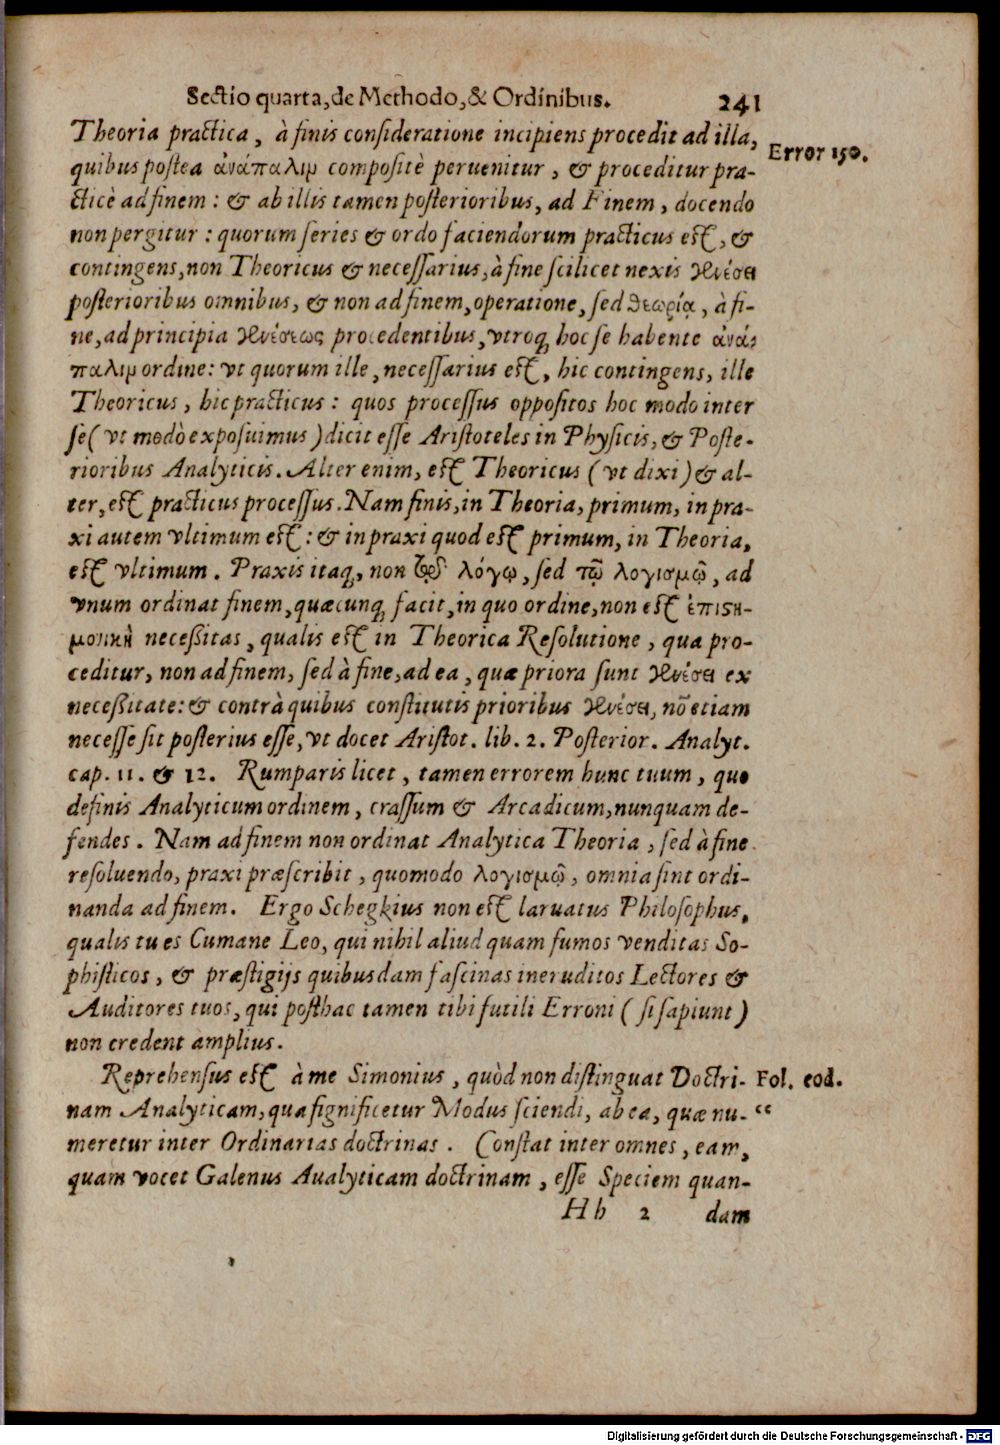 Sectio quarta, de Methodo, & Ordinibus. 241
Theoria practica, à finis consideratione incipiens procedit ad illa,
Error 150.
quibus postea ἀνάπαλιμ compositè peruenitur, & proceditur pra-
cticè ad finem: & ab illis tamen posterioribus, ad Finem, docendo
non pergitur: quorum series & ordo faciendorum practicus est, &
contingens, non Theoricus & necessarius, à fine scilicet nexis γενέσει
posterioribus omnibus, & non ad finem, operatione, sed θεωρίᾳ, à fi-
ne, ad principia γενέσεως procedentibus, vtroq; hoc se habente ἀνά-
παλιμ ordine: vt quorum ille, necessarius est, hic contingens, ille
Theoricus, hic practicus: quos processus oppositos hoc modo inter
se (vt modò exposuimus) dicit esse Aristoteles in Physicis, & Poste-
rioribus Analyticis. Alter enim, est Theoricus (vt dixi) & al-
ter, est practicus processus. Nam finis, in Theoria, primum, in pra-
xi autem vltimum est: & in praxi quod est primum, in Theoria,
est vltimum. Praxis itaq;, non λόγῳ, sed τῷ λογισμῷ, ad
vnum ordinat finem, quæcunq; facit, in quo ordine, non est ἐπιστη-
μονικὴ necessitas, qualis est in Theorica Resolutione, qua pro-
ceditur, non ad finem, sed à fine, ad ea, quæ priora sunt γενέσει ex
necessitate: & contrà quibus constitutis prioribus γενέσει, nō etiam
necesse sit posterius esse, vt docet Aristot. lib. 2. Posterior. Analyt.
cap. 11. & 12. Rumparis licet, tamen errorem hunc tuum, quo
definis Analyticum ordinem, crassum & Arcadicum, nunquam de-
fendes. Nam ad finem non ordinat Analytica Theoria, sed à fine
resoluendo, praxi præscribit, quomodo λογισμῷ, omnia sint ordi-
nanda ad finem. Ergo Schegkius non est laruatus Philosophus,
qualis tu es Cumane Leo, qui nihil aliud quam fumos venditas So-
phisticos, & præstigijs quibusdam fascinas ineruditos Lectores &
Auditores tuos, qui posthac tamen tibi futili Erroni (si sapiunt)
non credent amplius.
Reprehensus est à me Simonius, quòd non distinguat Doctri-
Fol. eod.
nam Analyticam, qua significetur Modus sciendi, ab ea, quæ nu-
“
meretur inter Ordinarias doctrinas. Constat inter omnes, eam,
quam vocet Galenus Aualyticam doctrinam, esse Speciem quan-
Hh 2 dam
Digitalisierung gefördert durch die Deutsche Forschungsgemeinschaft - DFG